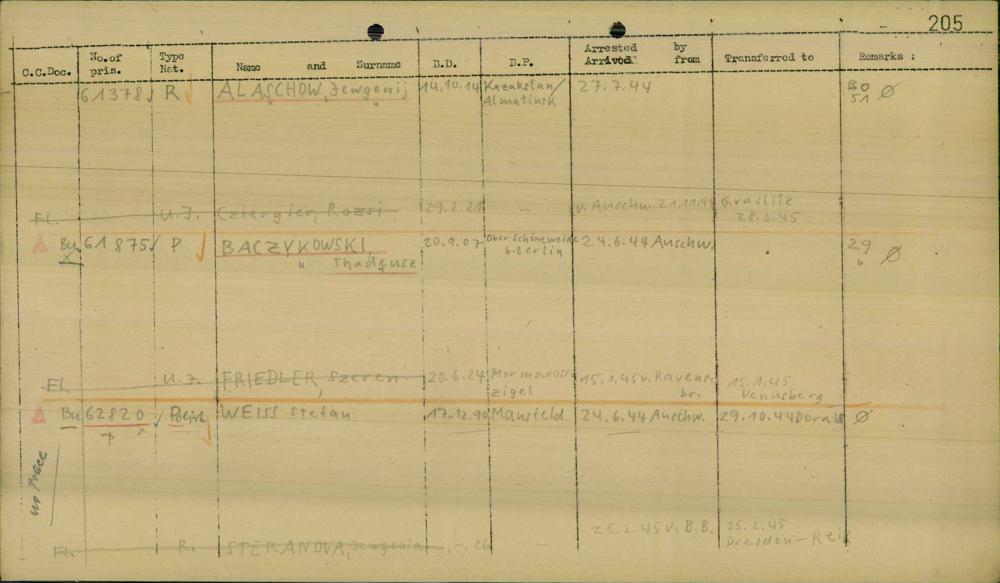 205
C.C.Doc. No.of pris. Type Nat. Name and Surname D.D. D.P. Arrested by Arrived from Transferred to Remarks :
61378 R ALASCHOW, Jewgenij 14.10.14 Kazakstan/ 27.7.44
Almatinsk 51 Ø
Fl. U.J. Cziergier, Rozsi 29.2.21 – v. Auschw. 21.11.44 Graslitz
28.3.45
Bu 61875 P BACZYKOWSKI, 20.9.07 Ober Schöneweide 24.6.44 Auschw. 29 Ø
x " Thadeusz b. Berlin "
Fl. U.J. FRIEDLER, Szeren 20.6.24 Marmaross 15.1.45 v. Ravens 15.1.45
zigel br. Venusberg
Bu 62820 WEISS Stefan 17.12.90 Mansfeld 24.6.44 Auschw. 29.10.44 Dora Ø
no trace
25.2.45 v. B.B. 25.2.45
Fl. R. STEPANOVA, Jewgenia -.-.26 – Dresden-Reik